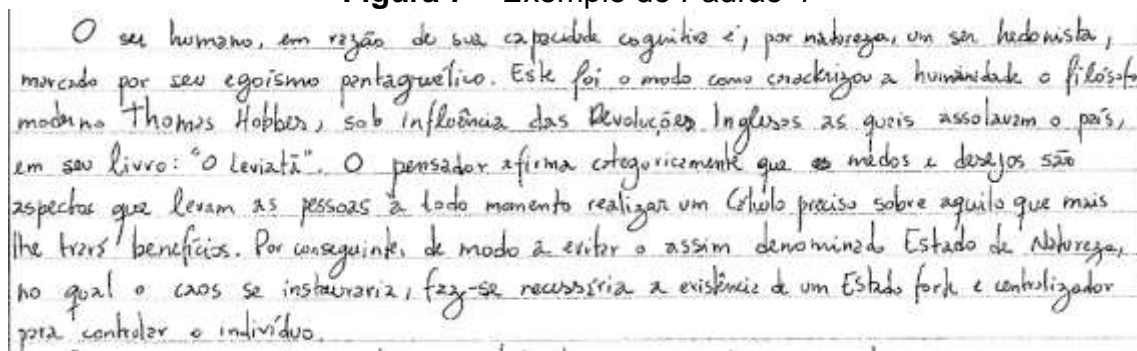 Figura 7 – Exemplo de Padrão 4
O ser humano, em razão de sua capacidade cognitiva é, por natureza, um ser hedonista,
marcado por seu egoísmo pantagruélico. Este foi o modo como caracterizou a humanidade o filósofo
moderno Thomas Hobbes, sob influência das Revoluções Inglesas as quais assolavam o país,
em seu livro: "O Leviatã". O pensador afirma categoricamente que medos e desejos são
aspectos que levam as pessoas à todo momento realizar um Cálculo preciso sobre aquilo que mais
lhe trará benefícios. Por conseguinte, de modo a evitar o assim denominado Estado de Natureza,
no qual o caos se instauraria, faz-se necessária a existência de um Estado forte e centralizador
para controlar o indivíduo.